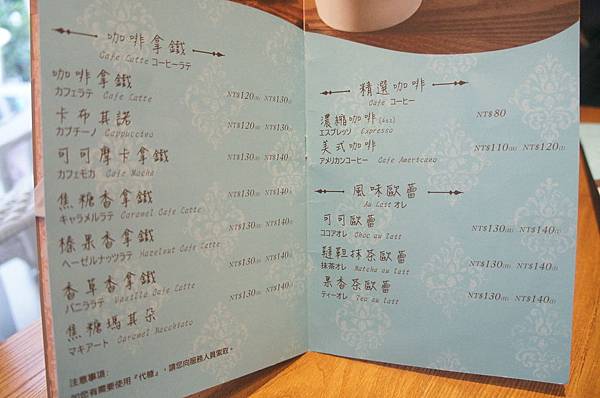 咖啡拿鐵
Cafe Latte コーヒーラテ
咖啡拿鐵
カフェラテ Cafe Latte NT$120(H) NT$130(I)
卡布其諾
カプチーノ Cappuccino NT$120(H) NT$130(I)
可可摩卡拿鐵
カフェモカ Cafe Mocha NT$130(H) NT$140(I)
焦糖香拿鐵
キャラメルラテ Caramel Cafe Latte NT$130(H) NT$140(I)
榛果香拿鐵
ヘーゼルナッツラテ Hazelnut Cafe Latte NT$130(H) NT$140(I)
香草香拿鐵
バニララテ Vanilla Cafe Latte NT$130(H) NT$140(I)
焦糖瑪其朵
マキアート Caramel Macchiato NT$130(H) NT$140(I)
注意事項:
如您有需要使用『代糖』,請您向服務人員索取。
精選咖啡
Cafe コーヒー
濃縮咖啡 NT$80
エスプレッソ Espresso
美式咖啡 NT$110(H) NT$120(I)
アメリカンコーヒー Cafe Americano
風味歐蕾
Au Lait オレ
可可歐蕾
ココアオレ Choc au lait NT$130(H) NT$140(I)
韃靼抹茶歐蕾
抹茶オレ Matcha au lait NT$130(H) NT$140(I)
果香茶歐蕾
ティーオレ Tea au lait NT$130(H) NT$140(I)